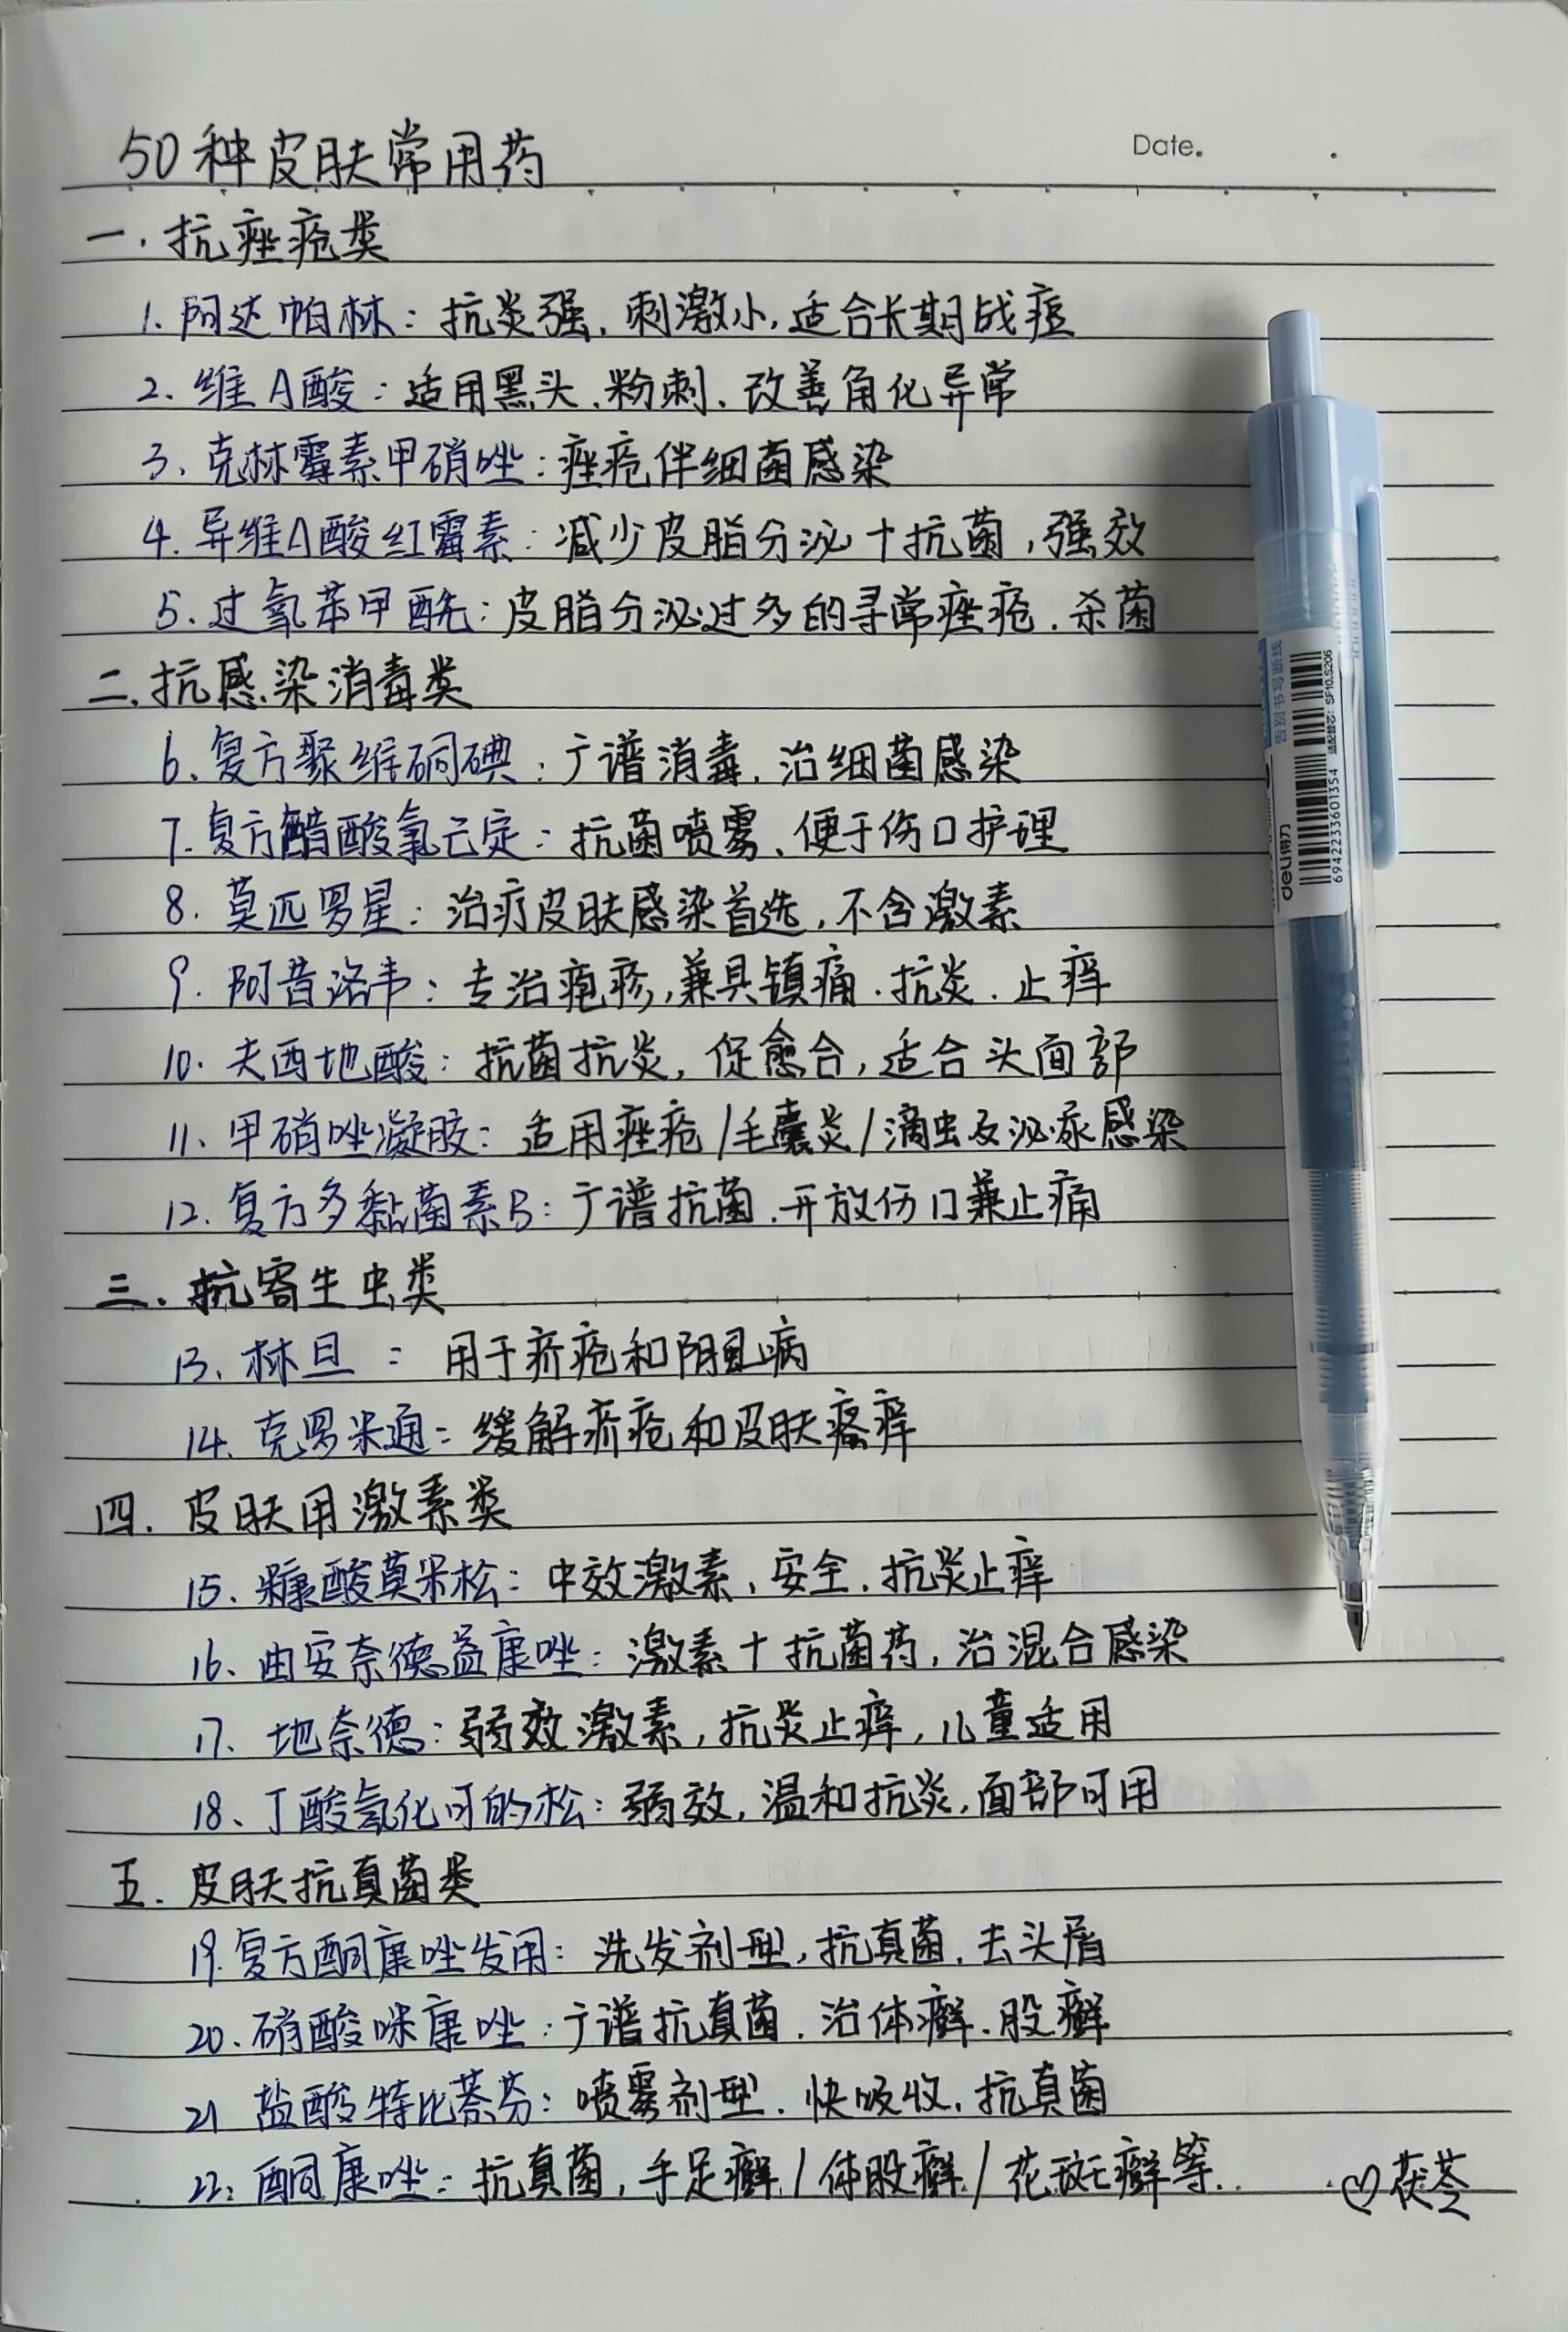 Date.
50种皮肤常用药
一.抗痤疮类
1.阿达帕林：抗炎强，刺激小，适合长期战痘
2.维A酸：适用黑头、粉刺、改善角化异常
3、克林霉素甲硝唑：痤疮伴细菌感染
4.异维A酸红霉素：减少皮脂分泌+抗菌，强效
5、过氧苯甲酰：皮脂分泌过多的寻常痤疮.杀菌
二.抗感染消毒类
6、复方聚维酮碘：广谱消毒，治细菌感染
7.复方醋酸氯己定：抗菌喷雾、便于伤口护理
8.莫匹罗星：治疗皮肤感染首选，不含激素
9.阿昔洛韦：专治疱疹，兼具镇痛.抗炎.止痒
10.夫西地酸：抗菌抗炎，促愈合，适合头面部
11、甲硝唑凝胶：适用痤疮/毛囊炎/滴虫及泌尿感染
12.复方多黏菌素B：广谱抗菌.开放伤口兼止痛
三.抗寄生虫类
13、林旦：用于疥疮和阴虱病
14.克罗米通：缓解疥疮和皮肤瘙痒
四.皮肤用激素类
15、糠酸莫米松：中效激素、安全.抗炎止痒
16、曲安奈德益康唑：激素+抗菌药，治混合感染
17、地奈德：弱效激素，抗炎止痒，儿童适用
18、丁酸氢化可的松：弱效，温和抗炎，面部可用
五.皮肤抗真菌类
19.复方酮康唑发用：洗发剂型，抗真菌，去头屑
20.硝酸咪康唑：广谱抗真菌.治体癣、股癣
21 盐酸特比萘芬：喷雾剂型.快吸收，抗真菌
22：酮康唑：抗真菌，手足癣/体股癣/花斑癣等..
♡茯苓
告别书写断线
适配替芯：SF10,S206
6942233601354
deli得力